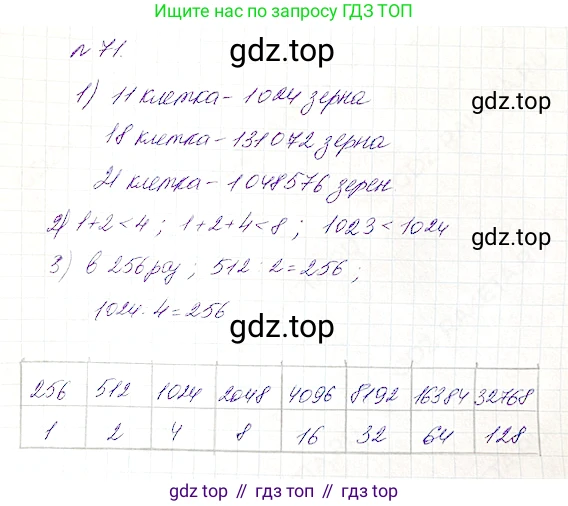 Ищите нас по запросу ГДЗ ТОП
gdz.top
№ 71.
1) 11 клетка - 1024 зерна
gdz.top
18 клетка - 131072 зерна
21 клетка - 1048576 зерен
2) 1+2<4 ; 1+2+4<8 ; 1023<1024
gdz.top
3) в 256 раз ; 512 : 2 = 256 ;
1024 : 4 = 256
gdz.top
256 512 1024 2048 4096 8192 16384 32768
1 2 4 8 16 32 64 128
gdz.top // гдз топ // гдз.top